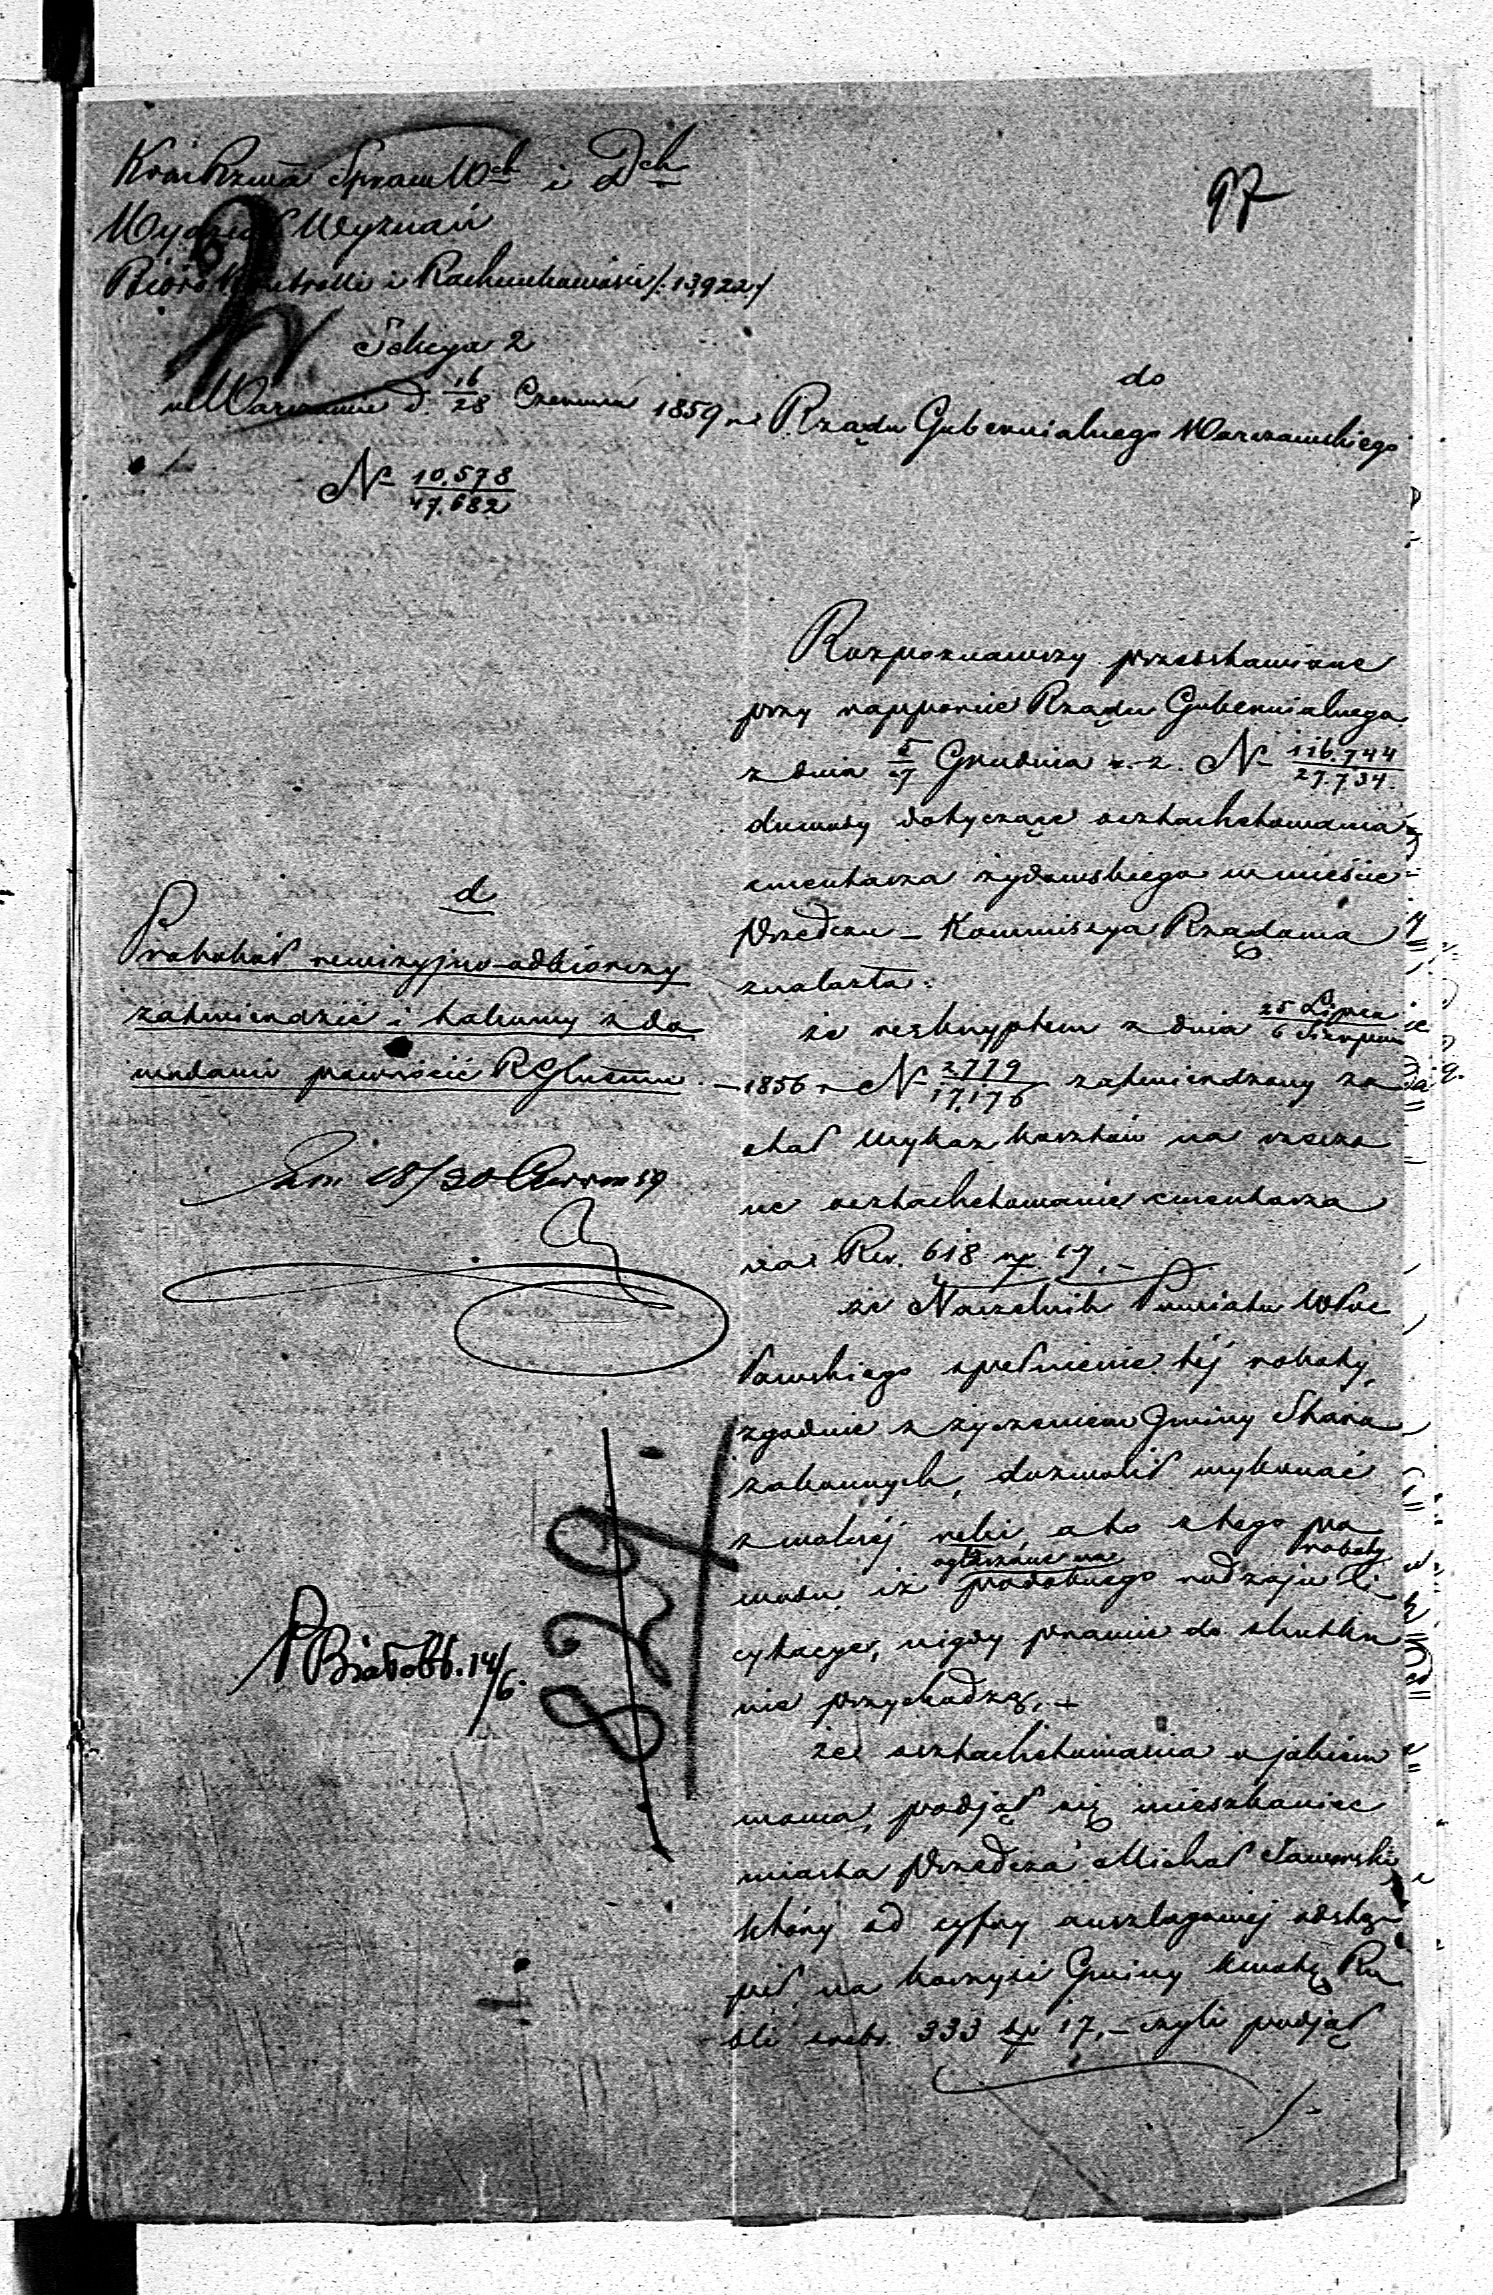 97
Kom Rzwa Spraw Wch i Dch
Wydział Wyznań
Bióro Kontrolli i Rachunkowości /:13922/
Sekcya 2
w Warszawie d. 16/28 Czerwca 1859 r
N 10,578/47,682
do
Rządu Gubernialnego Warszawskiego
d
Protokół rewizyjno-odbiorczy
zatwierdzić i takowy z do
wodami powrócić RGlnemu
Dn 18/30 Czerwca 59
P Białobł. 14/6.
829.
Rozpoznawszy przedstawione
przy rapporcie Rządu Gubernialnego
z dnia 5/17 Grudnia z. r. N 116.744/27.734.
dowody dotyczące osztachetowania
cmentarza żydowskiego w mieście
Przedczu – Kommissya Rządowa
znalazła:
że reskryptem z dnia 25 Lipca/6 Sierpnia
1856 r N 2779/17,176 zatwierdzony zo
stał wykaz kosztów na rzeczo
ne osztachetowanie cmentarza
na Rsr. 618 kp 17,–
że Naczelnik Powiatu Włoc
ławskiego spełnienie téj roboty,
zgodnie z życzeniem Gminy Staro
zakonnych, dozwolił wykonać
z wolnéj ręki, a to z tego po
wodu iż ogłaszane na podobnego rodzaju roboty li
cytacye, nigdy prawie do skutku
nie przychodzą,–
że osztachetowania o jakiem
mowa, podjął się mieszkaniec
miasta Przedcza Michał Jaworski
który od cyfry anszlagowej odstą-
pił na korzyść Gminy kwotę Ru
bli srebr. 333 kp 17,– czyli podjął